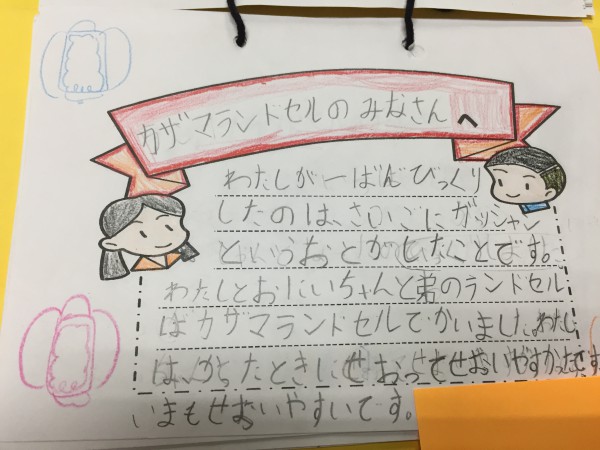 カザマランドセルのみなさんへ
わたしが一ばんびっくり
したのは、さいごにガッシャン
というおとがしたことです。
わたしとおにいちゃんと弟のランドセル
はカザマランドセルでかいました。わたし
は、かったときにせおってせおいやすかったです
いまもせおいやすいです。